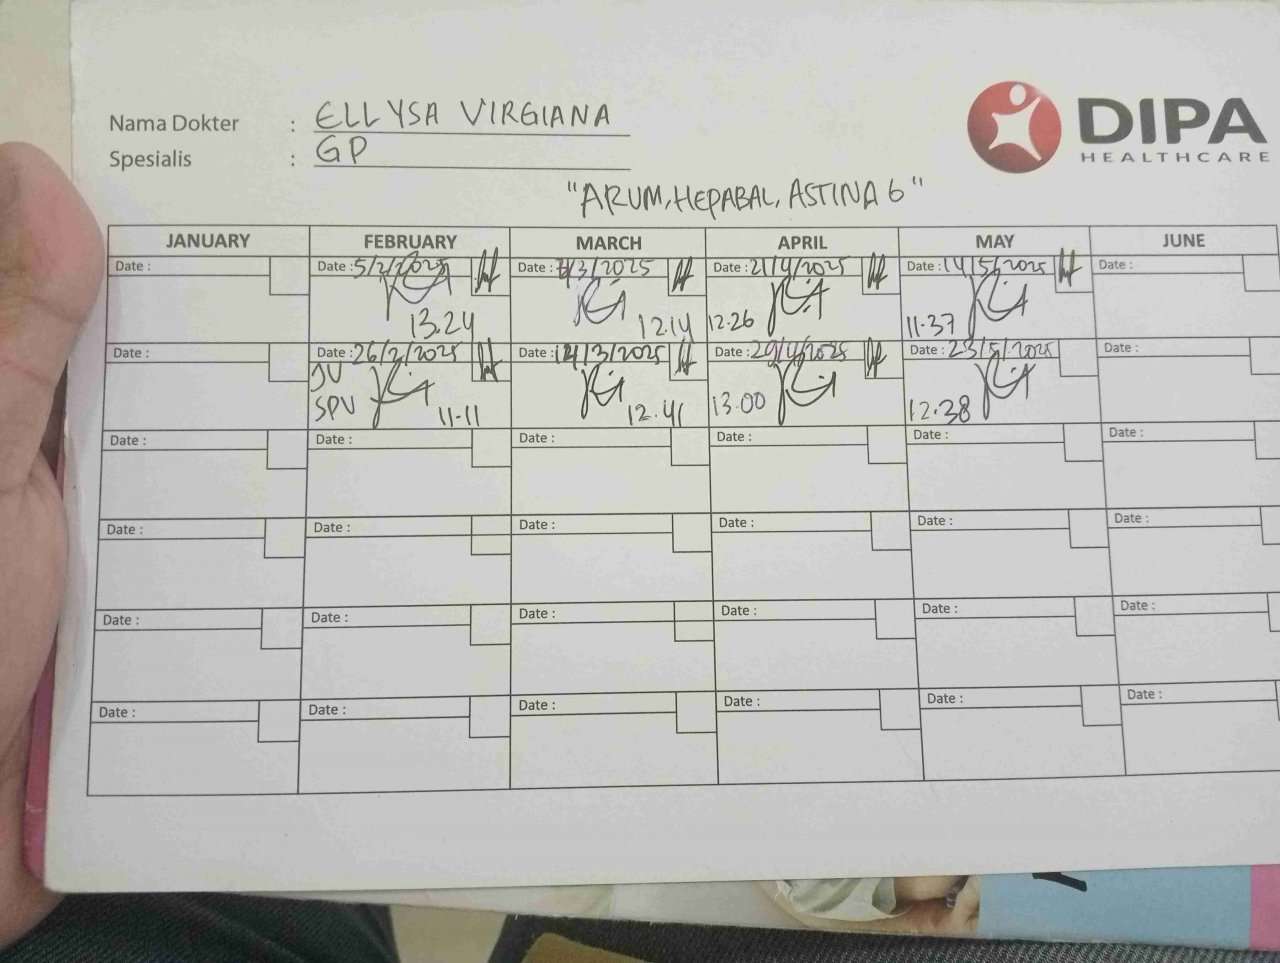 Nama Dokter : ELLYSA VIRGIANA
Spesialis : GP
DIPA
HEALTHCARE
"ARUM, HEPABAL, ASTINA 6"
JANUARY FEBRUARY MARCH APRIL MAY JUNE
Date : Date : 5/2/2025 Date : /3/2025 Date : 21/4/2025 Date : 14/5/2025 Date :
13.24 12.14 12.26 11.37
Date : Date : 26/2/2025 Date : /3/2025 Date : 29/4/2025 Date : 23/5/2025 Date :
JV
SPV 11.11 12.41 13.00 12.38
Date : Date : Date : Date : Date : Date :
Date : Date : Date : Date : Date : Date :
Date : Date : Date : Date : Date : Date :
Date : Date : Date : Date : Date : Date :